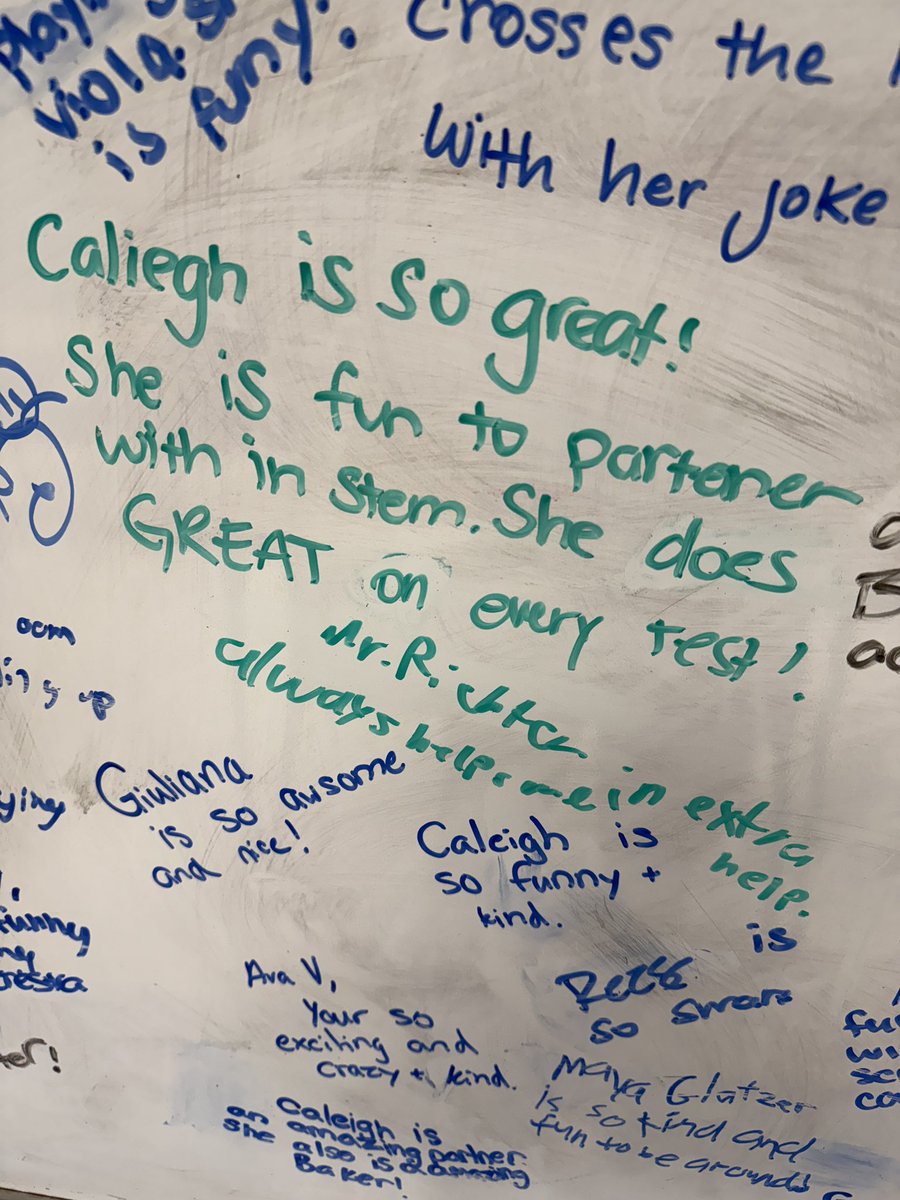 viola.
is funny!
Crosses the
with her joke
Caliegh is so great!
She is fun to partener
with in stem. She does
GREAT on every test!
always helps me in extra
help.
Giuliana
is so awsome
and nice!
Caleigh is
so funny +
kind.
is
so smart
Ava V,
Your so
exciting and
crazy + kind.
Maya Glatzer
is so kind and
fun to be around!
Caleigh is
an amazing partner
she also is a amazing
Baker!
funny